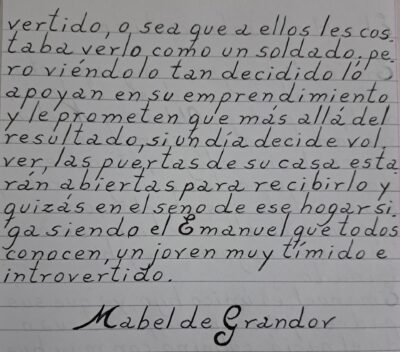 vertido, o sea que a ellos les cos-
taba verlo como un soldado, pe-
ro viéndolo tan decidido lo
apoyan en su emprendimiento
y le prometen que más allá del
resultado, si un día decide vol-
ver, las puertas de su casa esta-
rán abiertas para recibirlo y
quizás en el seno de ese hogar si-
ga siendo el Emanuel que todos
conocen, un joven muy tímido e
introvertido.
Mabel de Grandov